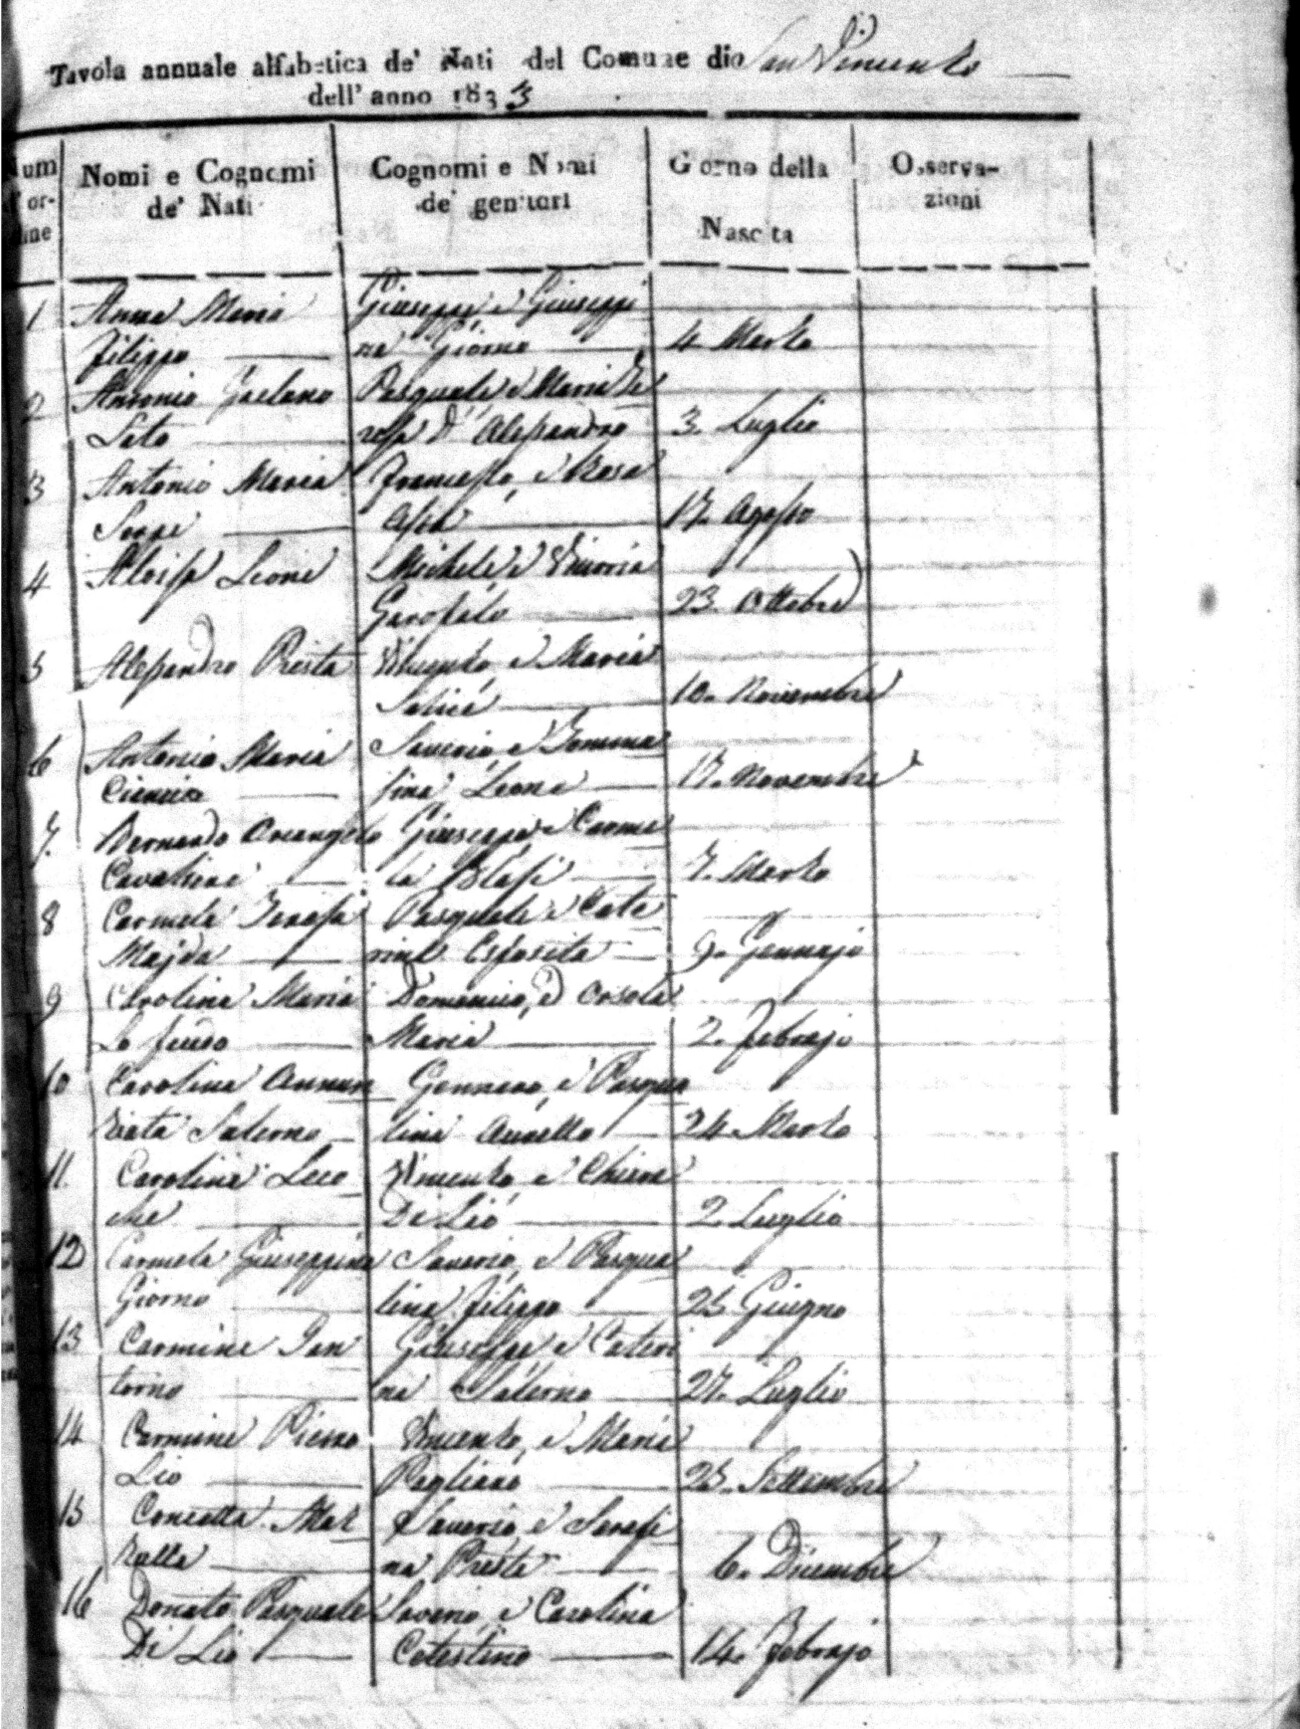 Tavola annuale alfabetica de' Nati del Comune di San Vincenzo
dell' anno 1833
Num d'ordine Nomi e Cognomi de' Nati Cognomi e Nomi de' genitori Giorno della Nascita Osservazioni
1 Anna Maria Giuseppe e Giuseppi
Filippo na Giorno 4. Marzo
2 Antonio Gaetano Pasquale e Maria Te
Lato resa D' Alessandro 3. Luglio
3 Antonio Maria Francesco, e Rosa
17. Agosto
4 Aloisa Leone Michele e
Garofalo 23. Ottobre
5 Alessandro Presta Vincenzo, e Maria
10. Novembre
6 Antonio Maria Saverio, e Tomma
sina Leone 17. Novembre
7. Bernardo Arcangelo Giuseppe e Carme
Cavalieri la Blasi 7. Marzo
8 Carmela Teresa Pasquale e Cate
Majda rina Esposito 9. Gennajo
9 Carolina Maria Domenico, ed
Lo Feudo Maria 2. Febrajo
10 Carolina Annun Gennaro, e Pasqua
ziata Salerno lina Aurello 24. Marzo
11. Carolina Lec Vincenzo e Chiara
che Di Lio 2. Luglio
12 Carmela Giuseppina Saverio, e Pasqua
Giorno lina Filippo 25 Giugno
13 Carmine Giuseppe e Cateri
torno na Salerno 27. Luglio
14 Carmine Vincenzo, e Maria
Lio Pagliaro 25. Settembre
15 Concetta Maz Saverio, e Serafi
zulla na Presta 6. Dicembre
16 Donato Pasquale Saverio, e Carolina
Di Lio Celestino 14. Febrajo